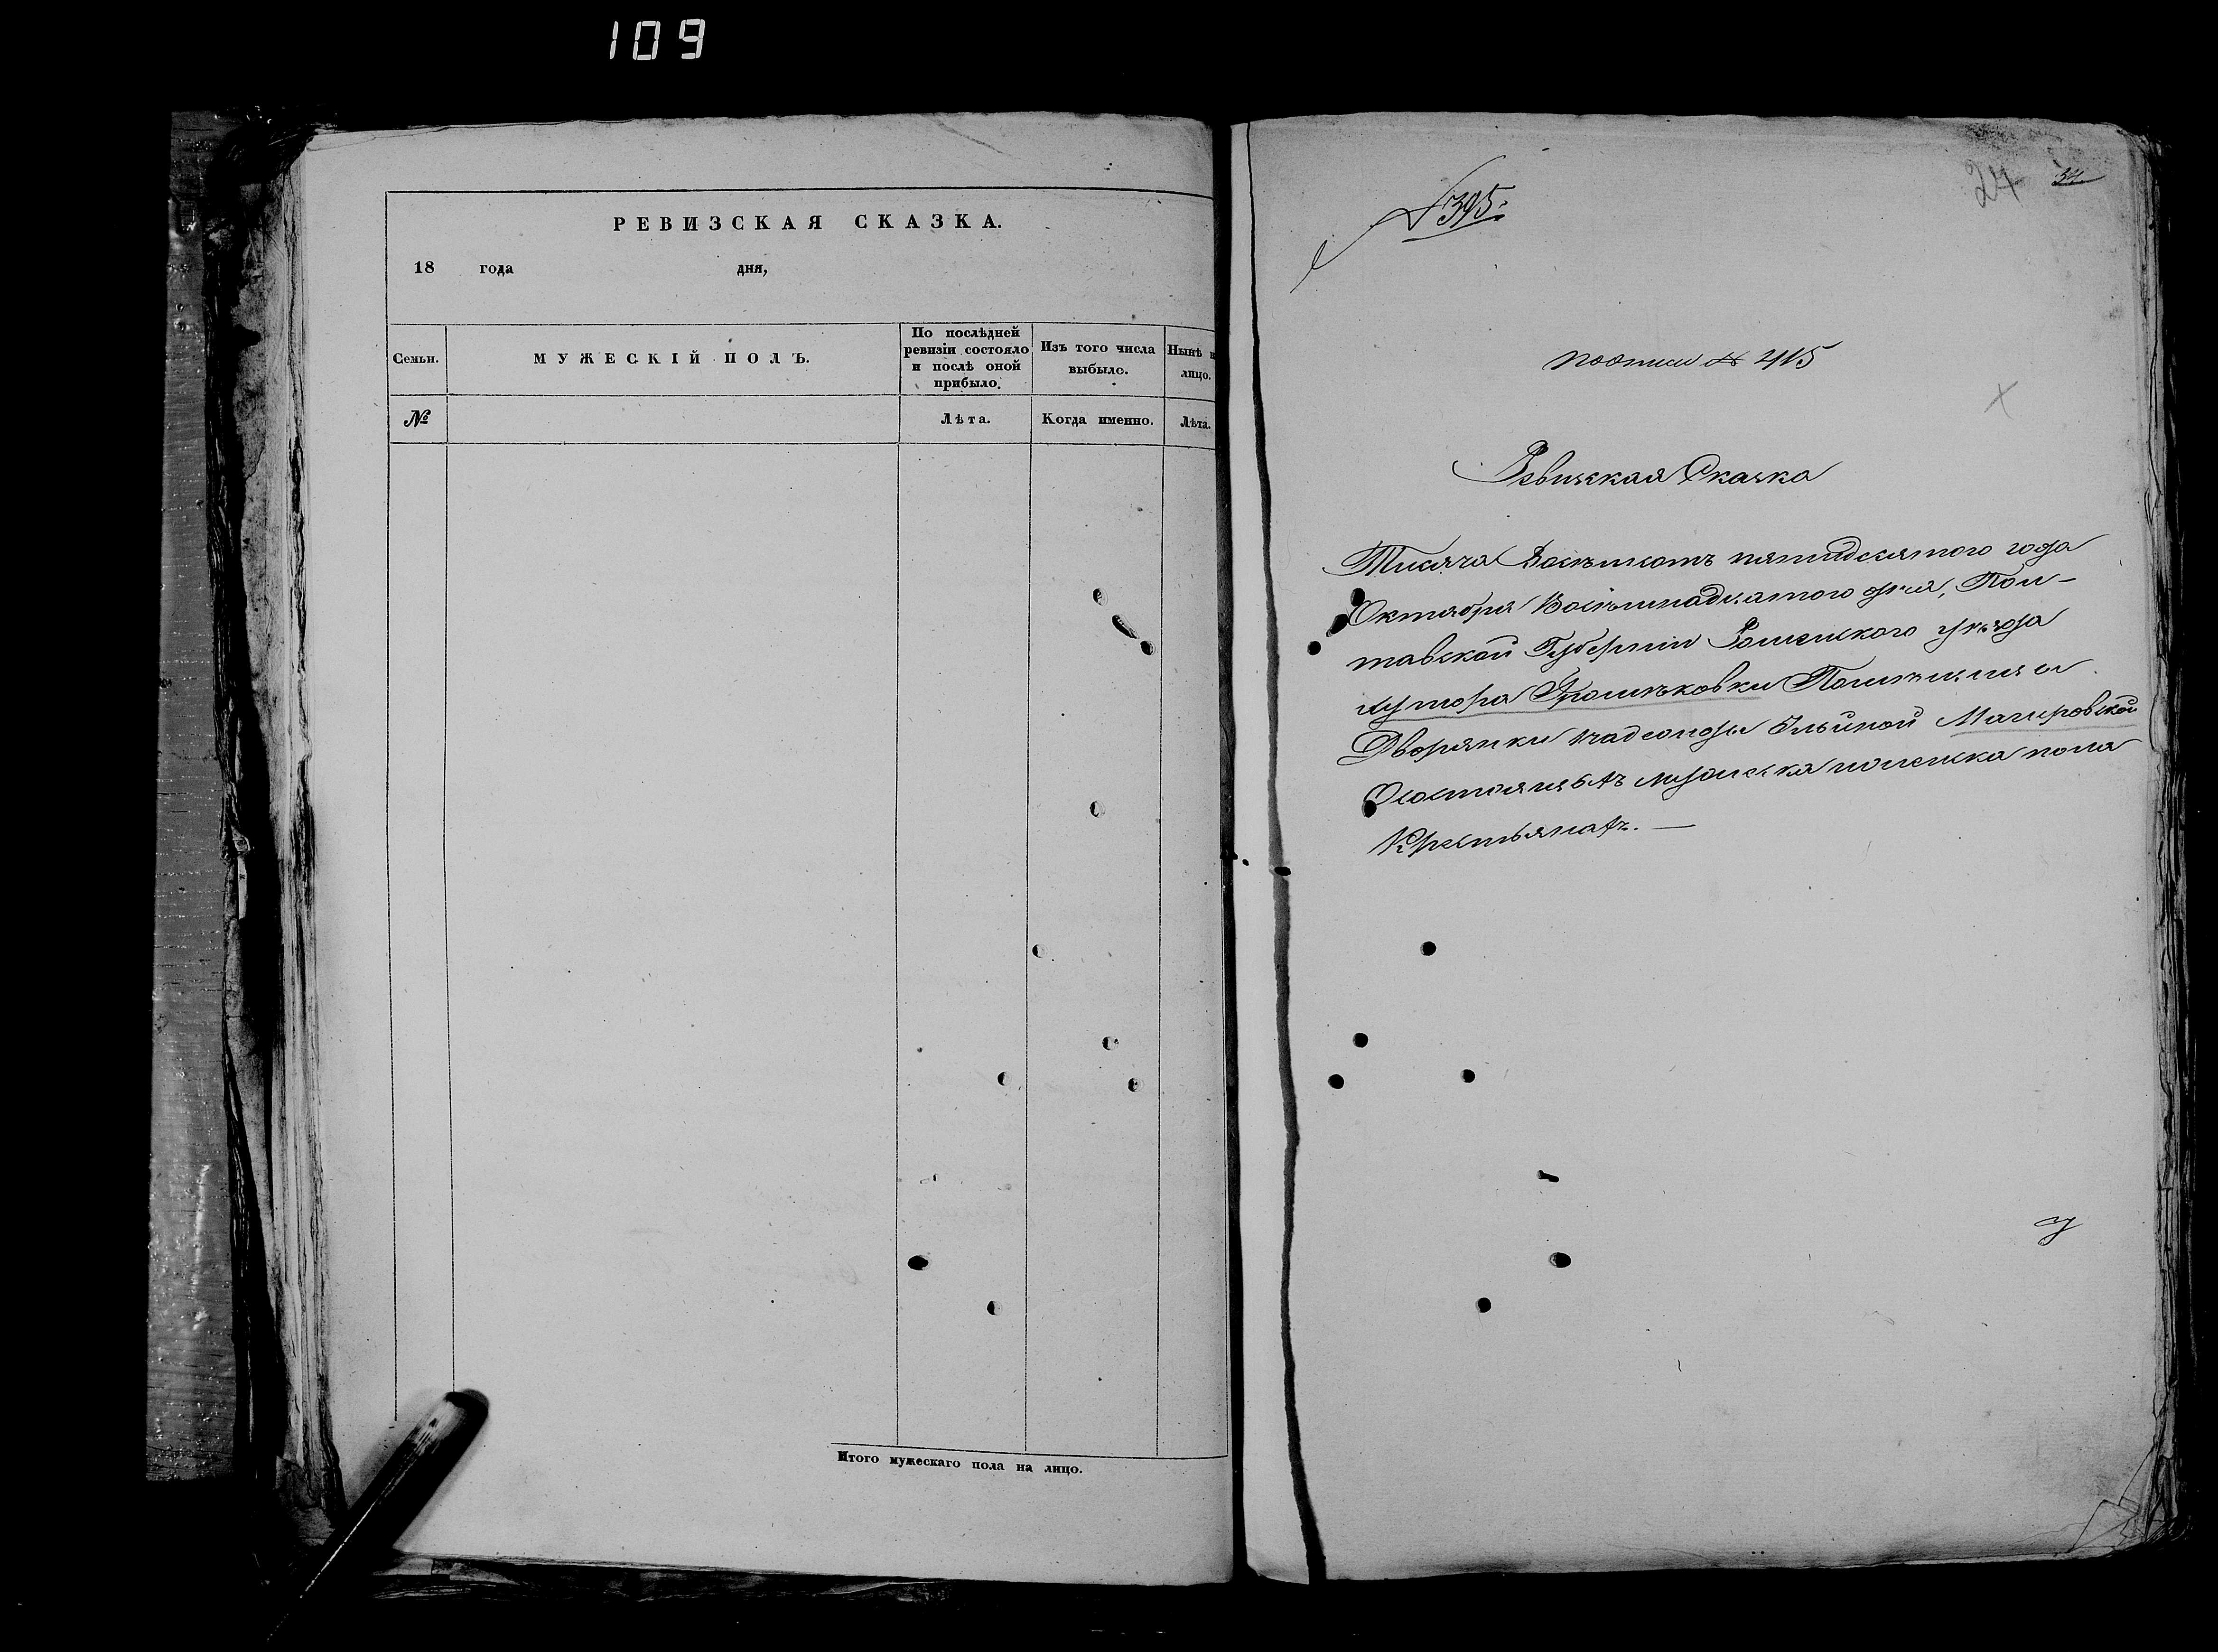 109
РЕВИЗСКАЯ СКАЗКА.
18 года дня,
Семьи.
МУЖЕСКІЙ ПОЛЪ.
По послѣдней
ревизіи состояло
и послѣ оной
прибыло.
Изъ того числа
выбыло.
Нынѣ н
лицо.
№
Лѣта.
Когда именно.
Лѣта.
Итого мужескаго пола на лицо.
24 34
№ 395:
по описи № 415
Ревизская Сказка
Тисяча Восѣмсотъ пятидесятого года
Октября Восѣмнадцатого дня, Пол-
тавской Губерніи Роменского уѣзда
хутора Ярошѣковки Помѣщицы
Дворянки Ильиной Магеровской
О состоящихъ мужеска и женска пола
Крестьянахъ. —